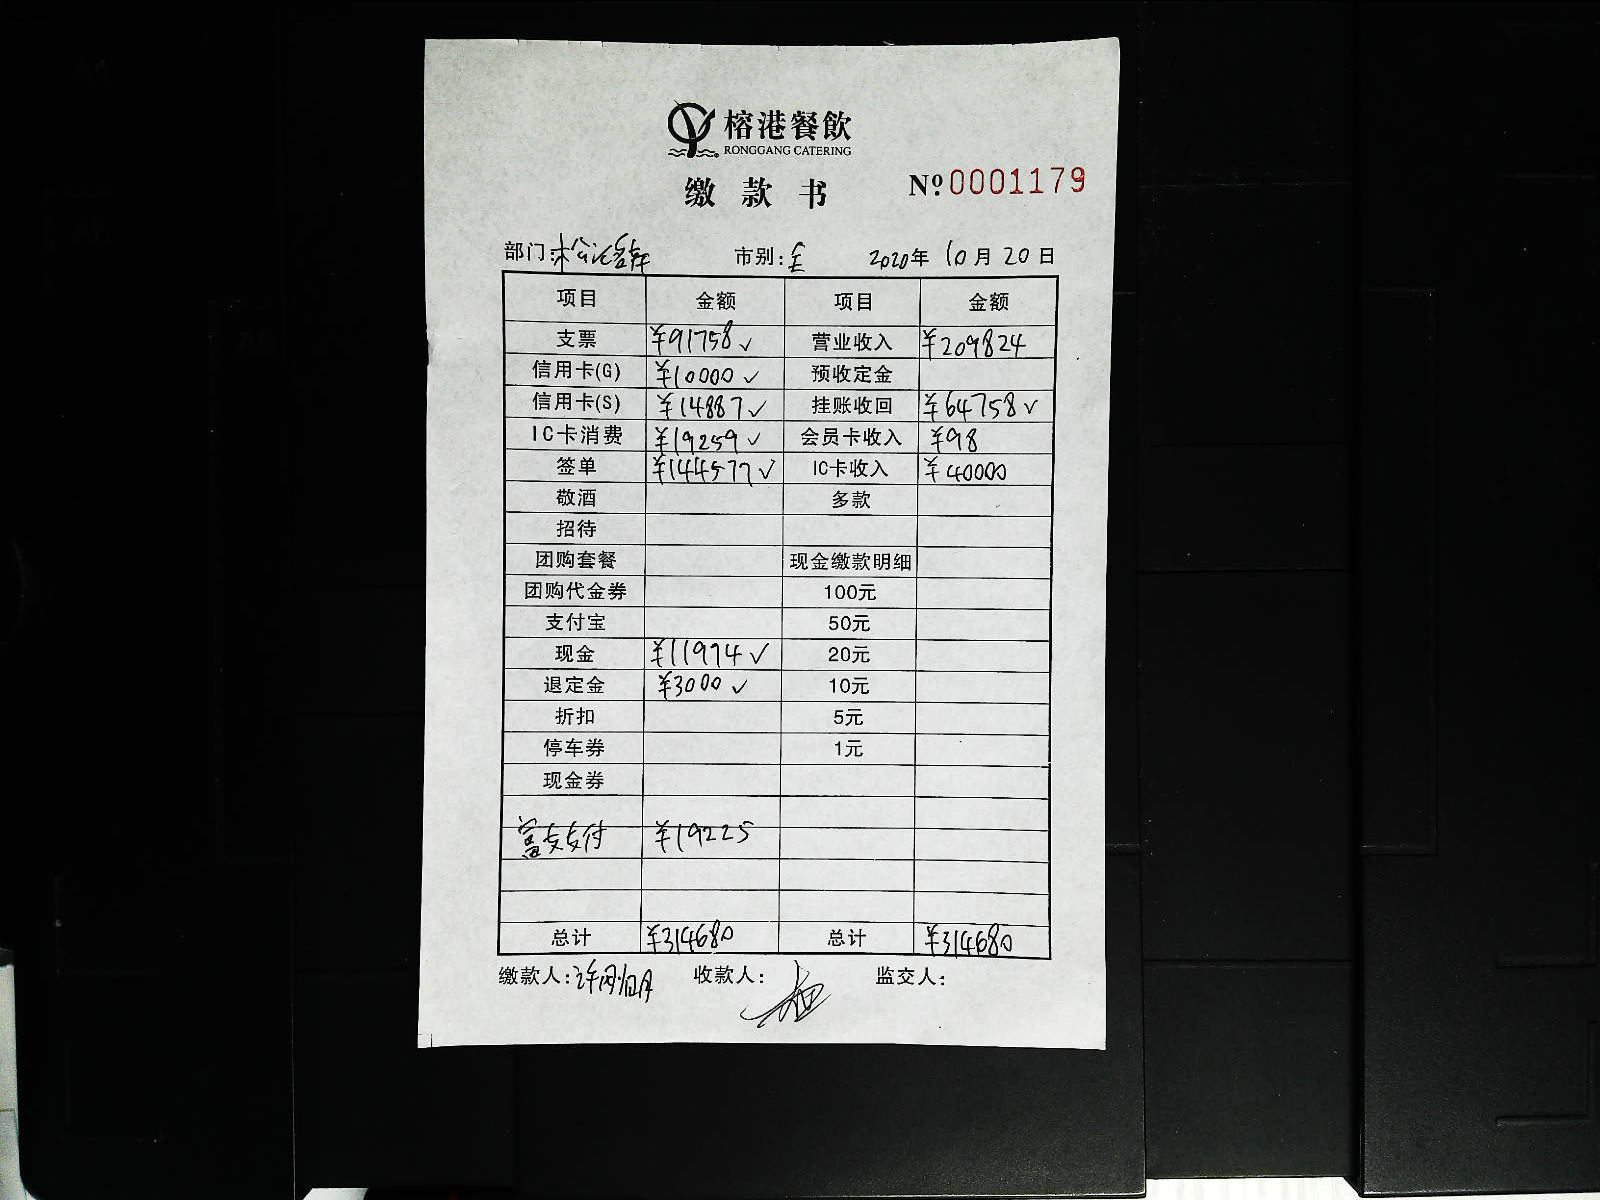 榕港餐飲
RONGGANG CATERING
缴款书 Nº 0001179
部门: 市别:全 2020年10月20日
项目 金额 项目 金额
支票 ¥91758✓ 营业收入 ¥209824
信用卡(G) ¥10000✓ 预收定金
信用卡(S) ¥14887✓ 挂账收回 ¥64758✓
IC卡消费 ¥19259✓ 会员卡收入 ¥98
签单 ¥144577✓ IC卡收入 ¥40000
敬酒 多款
招待
团购套餐 现金缴款明细
团购代金券 100元
支付宝 50元
现金 ¥11974✓ 20元
退定金 ¥3000✓ 10元
折扣 5元
停车券 1元
现金券
富友支付 ¥19225
总计 ¥314680 总计 ¥314680
缴款人: 收款人: 监交人: